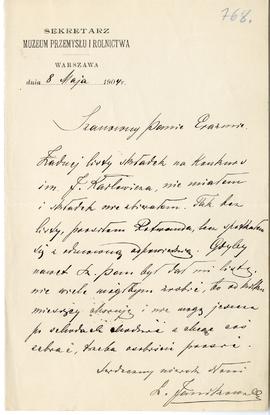 768.
SEKRETARZ
MUZEUM PRZEMYSŁU I ROLNICTWA
WARSZAWA
dnia 8 Maja 1904 r.
Szanowny Panie Erazmie.
Żadnej listy składek na Konkurs
im. J. Karłowicza, nie miałem
i składek nie zbierałem. Tak bez
listy, prosiłem
się z odmowną odpowiedzią. Gdyby
nawet Sz. Pan był dał mi listę,
nie wiele mógłbym zrobić, bo od kilku
miesięcy choruję i nie mogą jeszcze
po schodach chodzić a chcąc coś
zebrać, trzeba osobiście prosić.
Serdeczny uścisk dłoni